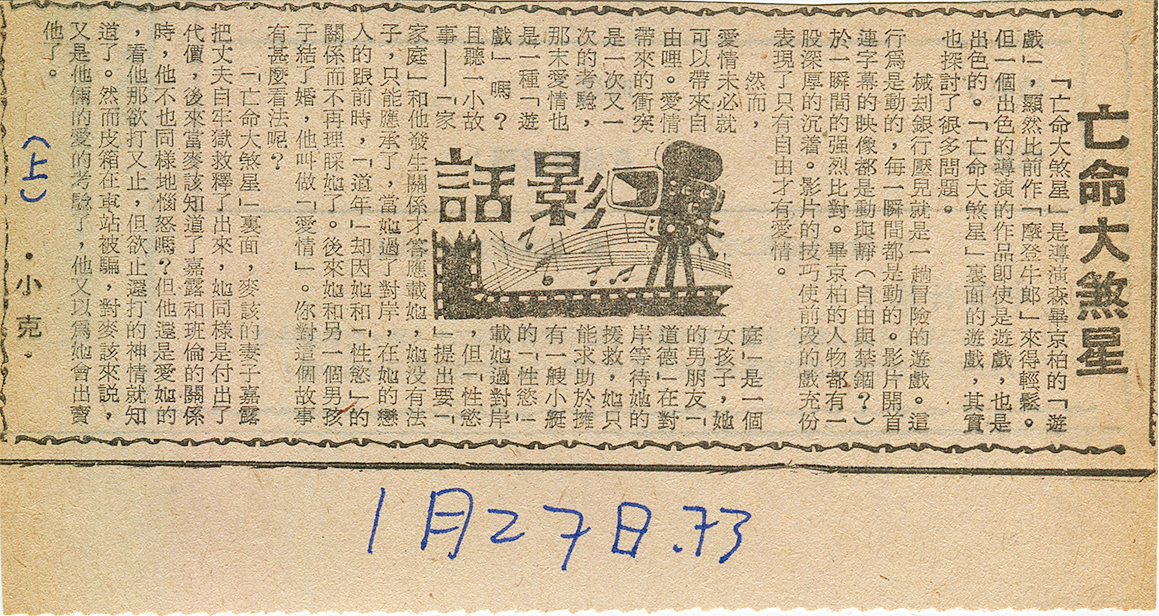 亡命大煞星
「亡命大煞星」是導演森畢京柏的「遊
戲」,顯然比前作「摩登牛郎」來得輕鬆。
但一個出色的導演的作品卽使是遊戲,也是
出色的。「亡命大煞星」裏面的遊戲,其實
也探討了很多問題。
械刦銀行壓兒就是一趟冒險的遊戲。這
行爲是動的,每一瞬間都是動的。影片開首
連字幕的映像都是動與靜(自由與禁錮?)
於一瞬間的强烈比對。畢京柏的人物都有一
股深厚的沉着。影片的技巧使前段的戲充份
表現了只有自由才有愛情。
然而,
愛情未必就
可以帶來自
由哩。愛情
帶來的衝突
是一次又一
次的考驗,
那末愛情也
是一種「遊
戲」嗎?
且聽一小故
事——「家
影話
庭」是一個
女孩子,她
的男朋友「
道德」在對
岸等待她的
援救,她只
能求助於擁
有一艘小艇
的「性慾」
載她過對岸
,但「性慾
」提出要「
家庭」和他發生關係才答應載她,她沒有法
子,只能應承了,當她過了對岸,在她的戀
人的跟前時,「道年」却因她和「性慾」的
關係而不再理睬她了。後來她和另一個男孩
子結了婚,他叫做「愛情」。你對這個故事
有甚麼看法呢?
「亡命大煞星」裏面,麥該的妻子嘉露
把丈夫自牢獄救釋了出來,她同樣是付出了
代價,後來當麥該知道了嘉露和班倫的關係
時,他不也同樣地惱怒嗎?但他還是愛她的
,看他那欲打又止,但欲止還打的神情就知
道了。然而皮箱在車站被騙,對麥該來說,
又是他倆的愛的考驗了,他又以爲她會出賣
他了。
(上)
・小克・
1月27日.73